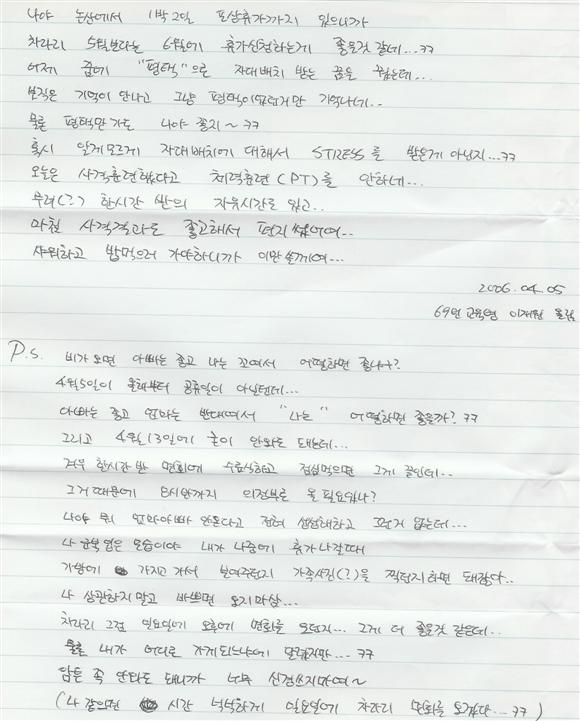 나야 논산에서 1박2일 포상휴가까지 있으니까
차라리 5월보다는 6월에 휴가신청하는게 좋을것 같네...ㅋㅋ
어제 꿈에 "평택"으로 자대배치 받는 꿈을 꿨는데...
보직은 기억이 안나고 그냥 평택이였던것만 기억나네..
물론 평택만 가도 나야 좋지~ㅋㅋ
혹시 알게모르게 자대배치에 대해서 STRESS를 받은게 아닌지...ㅋㅋ
오늘은 사격훈련했다고 체력훈련(PT)를 안하네...
무려(?) 한시간 반의 자유시간도 있고..
마침 사격결과도 좋고해서 편지 썼어여..
샤워하고 밥먹으러 가야하니까 이만 쓸께여...
2006.04.05
69번 교육병 이재원 올림
P.S. 비가오면 아빠는 좋고 나는 꼬여서 어떡하면 좋나ㅋ?
4월5일이 올해부터 공휴일이 아닐텐데...
아빠는 좋고 엄마는 반대여서 "나는" 어떡하면 좋을까? ㅋㅋ
그리고 4월 13일에 굳이 안와도 돼는데...
겨우 한시간 반 면회에 수료식하고 점심먹으면 그게 끝인데..
그거 때문에 8시반까지 의정부로 올 필요있나?
나야 뭐 엄마아빠 안온다고 전혀 섭섭해하고 그런거 없는데...
나 군복입은 모습이야 내가 나중에 휴가 나갈때
가방에 가지고 가서 보여주던지 가족사진(?)을 찍던지 하면 돼잖아..
나 상관하지말고 바쁘면 오지마삼...
차라리 그전 일요일에 오후에 면회를 오던지... 그게 더 좋을것 같은데..
물론 내가 어디로 가게되느냐에 달렸지만...ㅋㅋ
암튼 꼭 안와도 돼니까 너무 신경쓰지마여~
(나 같으면 시간 넉넉하게 일요일에 차라리 면회를 오겠다...ㅋㅋ)